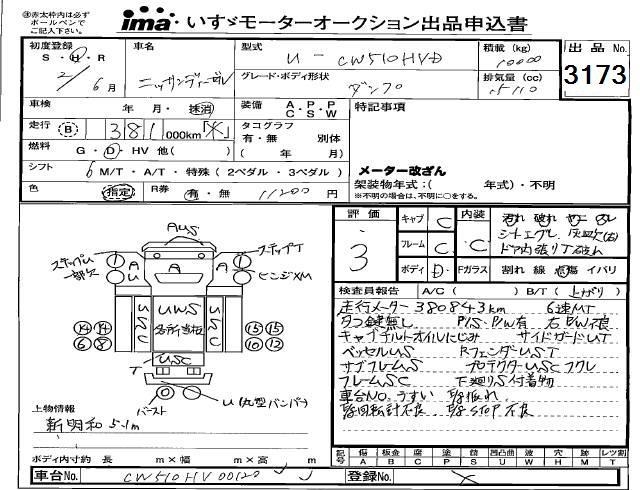 ㊟赤太枠内は必ず
ボールペンで
ご記入下さい。
ima いすゞモーターオークション出品申込書
初度登録
S・H・R
2/6月
車名
ニッサンディーゼル
型式
U-CW510HVD
グレード・ボディ形状
ダンプ
積載(kg)
10000
排気量(cc)
出品No.
3173
車検
年 月・抹消
装備 A・P・P
C・S・W
特記事項
走行 B 381000km
タコグラフ
有・無 別体
( 年 月)
燃料 G・D・HV 他( )
シフト 6M/T・A/T・特殊(2ペダル・3ペダル)
メーター改ざん
架装物年式:( 年式)・不明
※不明の場合は、不明に○をする。
色 指定 R券 有・無 11200円
評価
3
キャブ C
フレーム C
ボディ D
内装
シートエグレ
ドア内張り下破れ
Fガラス 割れ 線 点傷 イバリ
検査員報告 A/C( ) B/T(上がり)
走行メーター380843km 6速MT
タコ鍵無し P/S・P/W有 右P/W不良
キャブチルトオイルにじみ サイドガードUT
ベッセルUS RフェンダーUST
サブフレームUS プロテクターUSCフクレ
フレームUSC 下廻りS付着物
車台No.うすい
AUS
ステップU
一部欠
ステップT
ヒンジXM
A
A
USC
UWS
各所当板
USC
USC
T
14 14
6 8
15 15
10 12
バースト
U(丸型バンパー)
上物情報
新明和 5.1m
ボディ内寸約 長 m×幅 m×高 m
記号
傷 A
板金 B
腐 C
塗 P
錆 S
凹凸曲 U
波 W
穴 H
欠 M
レツ割 T
車台No. CW510HV00120
登録No.